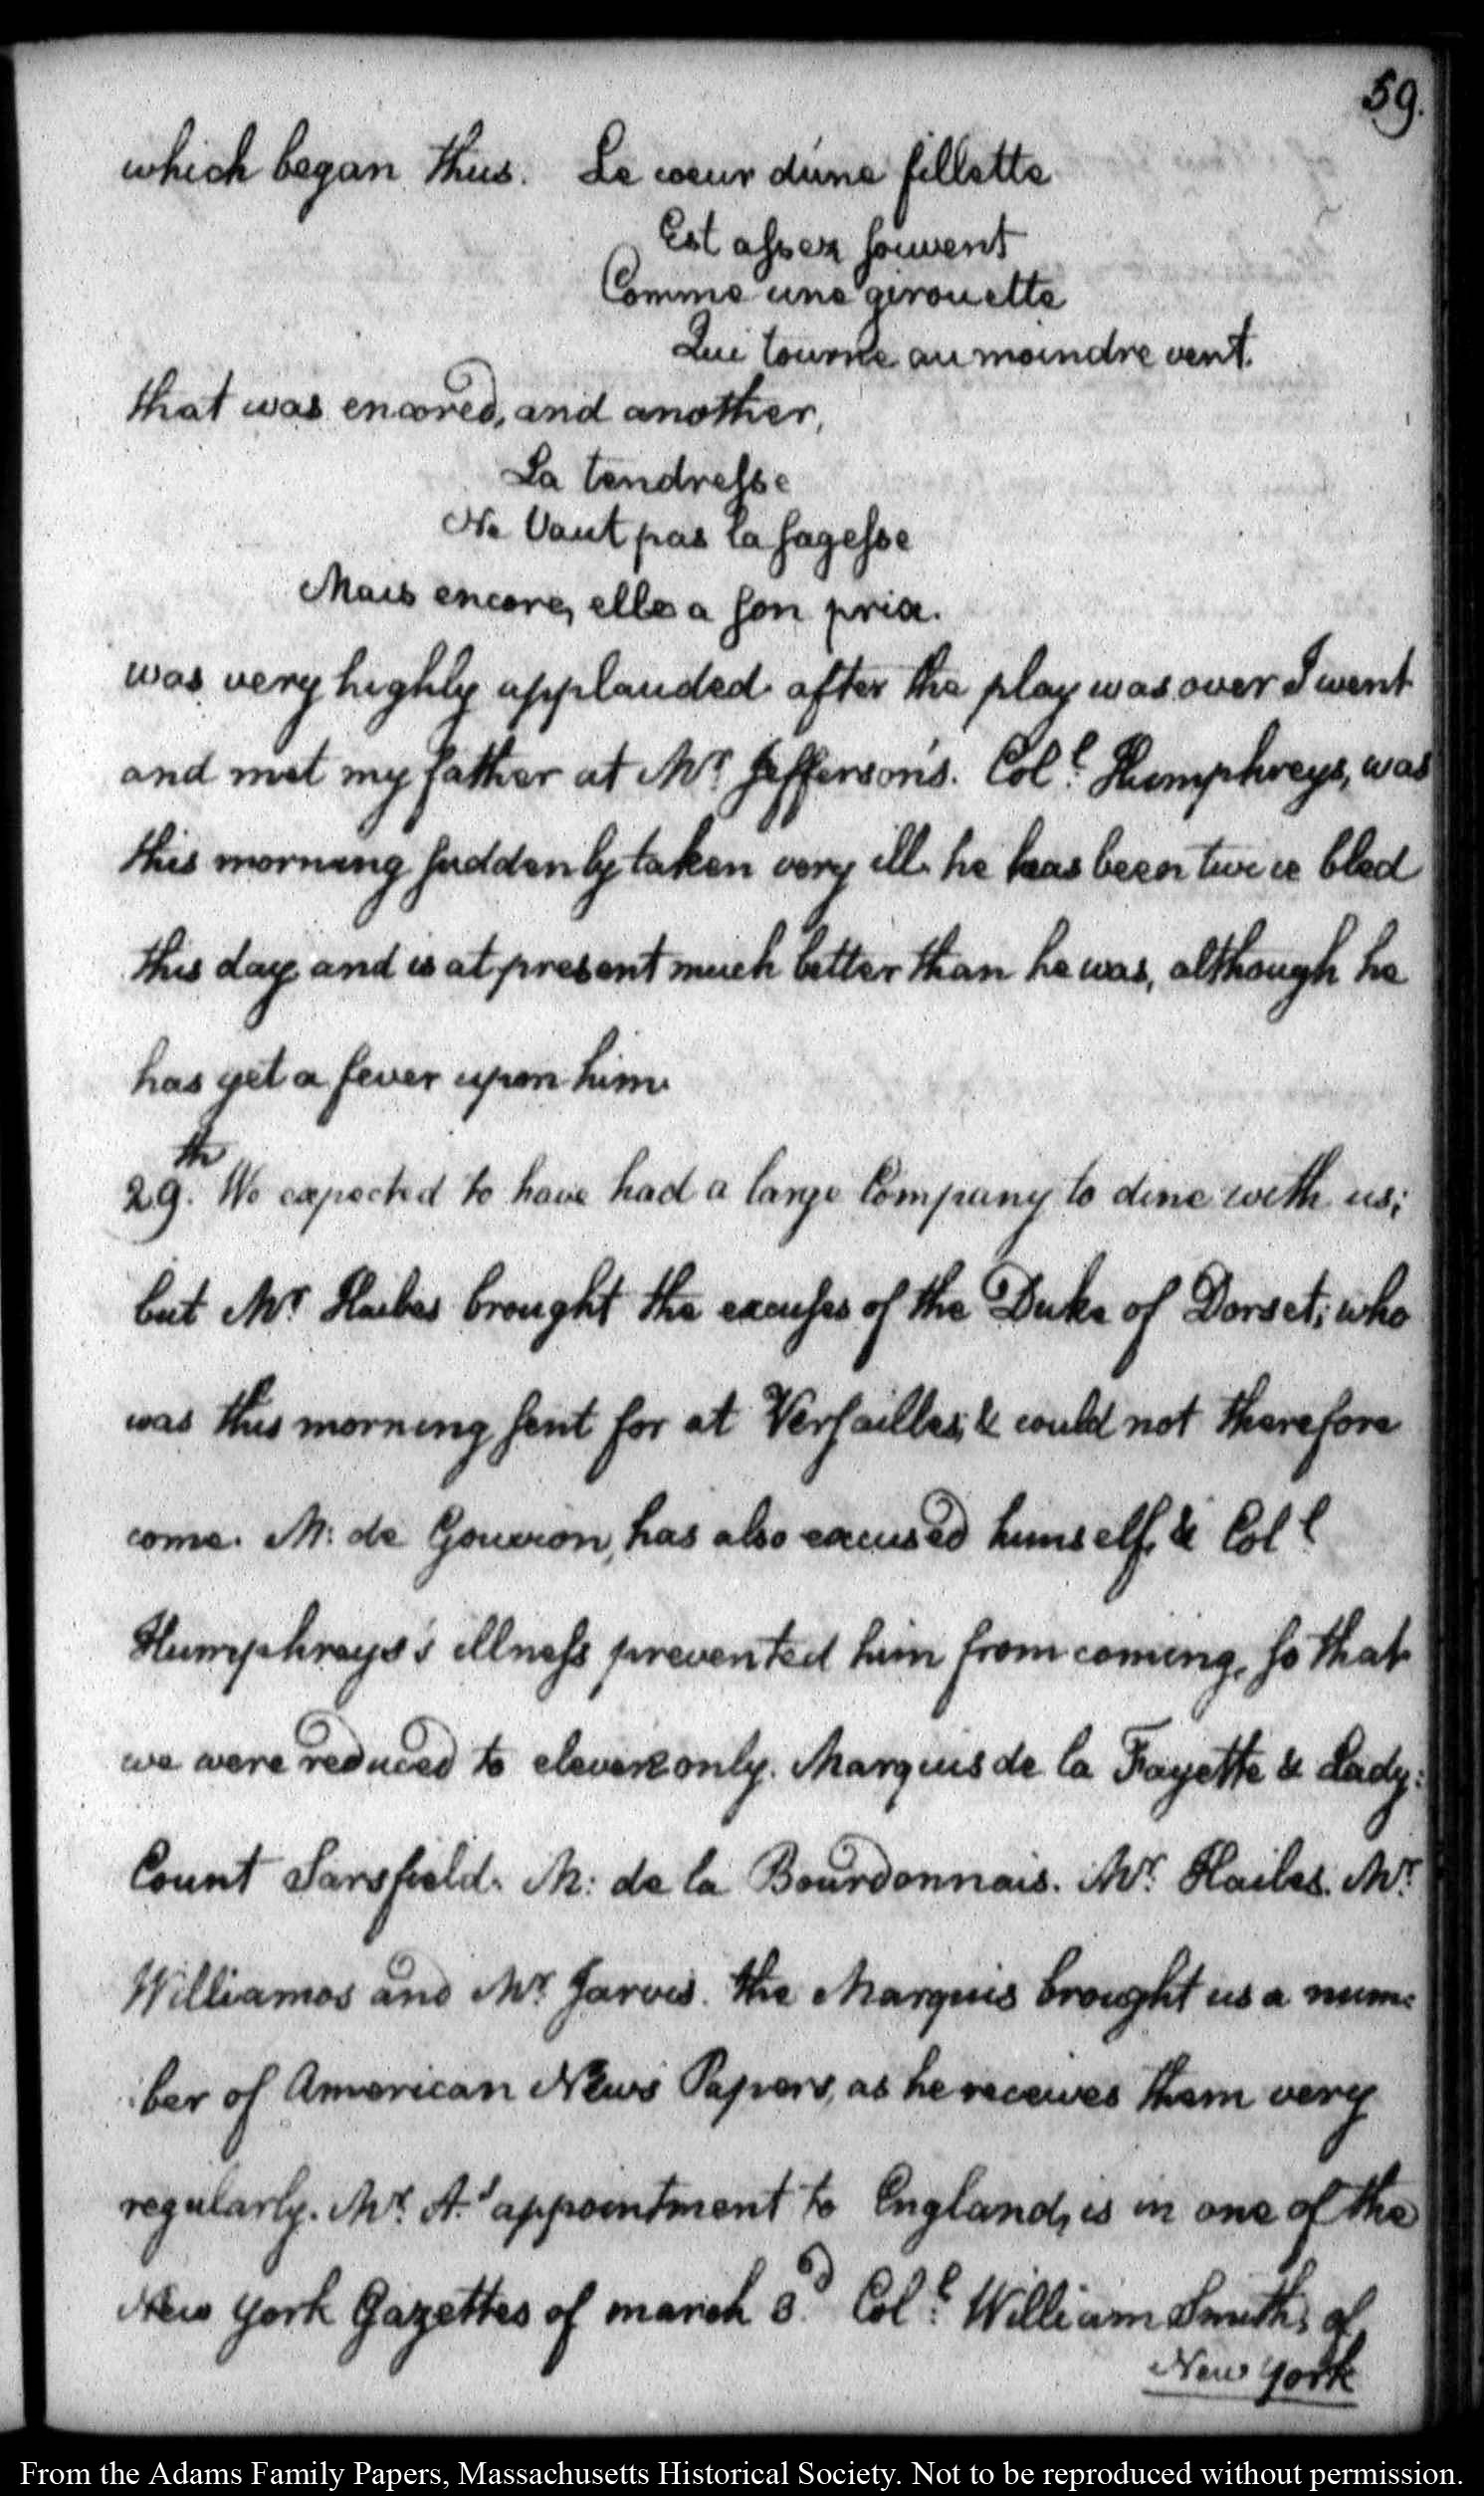 59.
which began thus. Le coeur d'une fillette
Est assez souvent
Comme une girouette
Qui tourne au moindre vent.
that was encored, and another,
La tendresse
Ne vaut pas la sagesse
Mais encore, elle a son prix.
was very highly applauded. after the play was over I went
and met my father at Mr. Jefferson's. Coll. Humphreys, was
this morning suddenly taken very ill. he has been twice bled
this day and is at present much better than he was, although he
has yet a fever upon him.
29th. We expected to have had a large Company to dine with us;
but Mr Hailes brought the excuses of the Duke of Dorset; who
was this morning sent for at Versailles, & could not therefore
come. M: de Gouvion, has also excused himself, & Coll
Humphreys's illness prevented him from coming, so that
we were reduced to eleven only. Marquis de la Fayette & Lady:
Count Sarsfield. M: de la Bourdonnais. Mr. Hailes. Mr.
Williamos and Mr. Jarvis. the Marquis brought us a num:
:ber of American News Papers, as he receives them very
regularly. Mr. A's appointment to England, is in one of the
New York Gazettes of march 3d. Coll. William Smith, of
New York
From the Adams Family Papers, Massachusetts Historical Society. Not to be reproduced without permission.